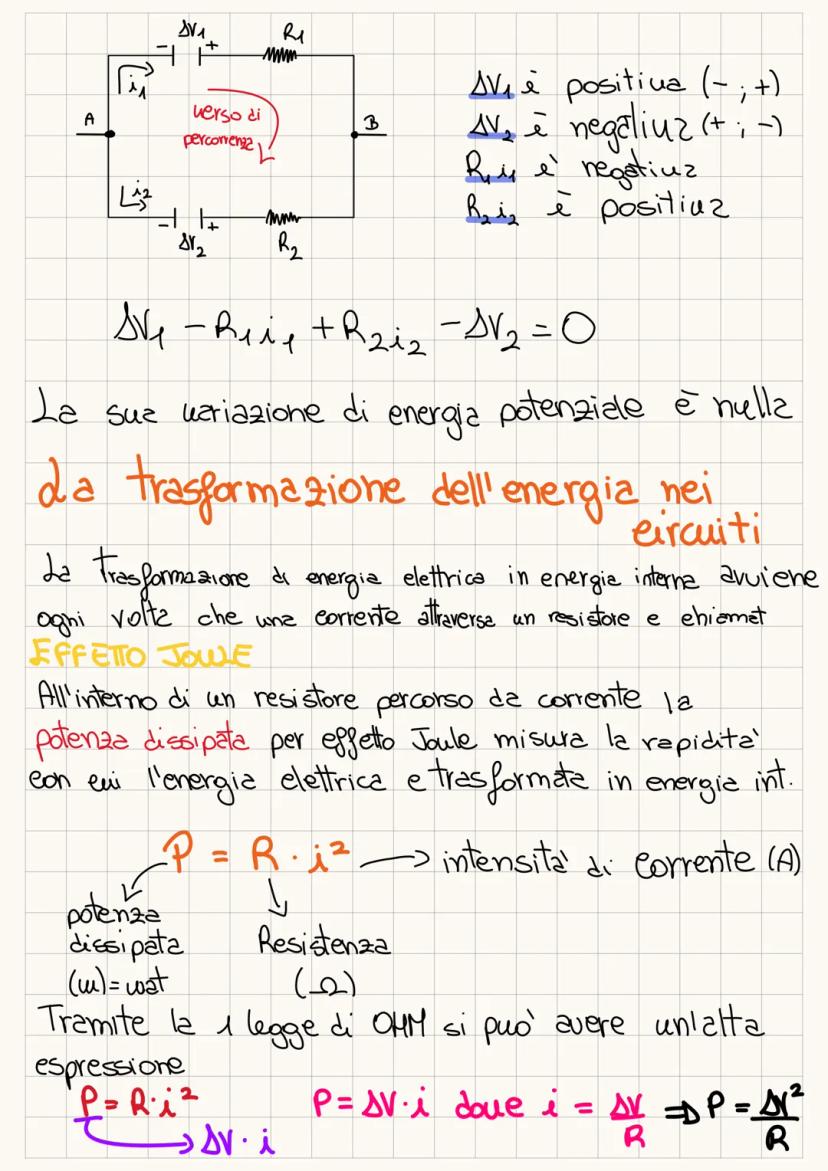 ΔV1
- +
R1
i1
A
verso di
percorrenza
B
i2
- +
ΔV2
R2
ΔV1 è positiva (- ; +)
ΔV2 è negativa (+ ; -)
R1 i1 e' negativa
R2 i2 è positiva
ΔV1 - R1 i1 + R2 i2 - ΔV2 = 0
La sua variazione di energia potenziale è nulla
La trasformazione dell'energia nei
circuiti
La Trasformazione di energia elettrica in energia interna avviene
ogni volta che una corrente attraversa un resistore e chiamat
EFFETTO JOULE
All'interno di un resistore percorso da corrente la
potenza dissipata per effetto Joule misura la rapidita'
con cui l'energia elettrica e trasformata in energia int.
P = R · i² → intensita' di corrente (A)
potenza
dissipata
(W) = wat
Resistenza
(Ω)
Tramite la 1 legge di OHM si puo' avere un'alta
espressione
P = R · i²
ΔV · i
P = ΔV · i dove i = ΔV/R ⇒ P = ΔV²/R